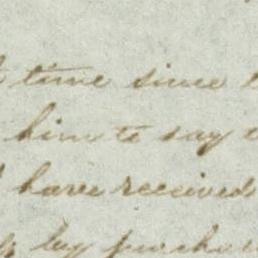 time since
him to say
have received
by purchas